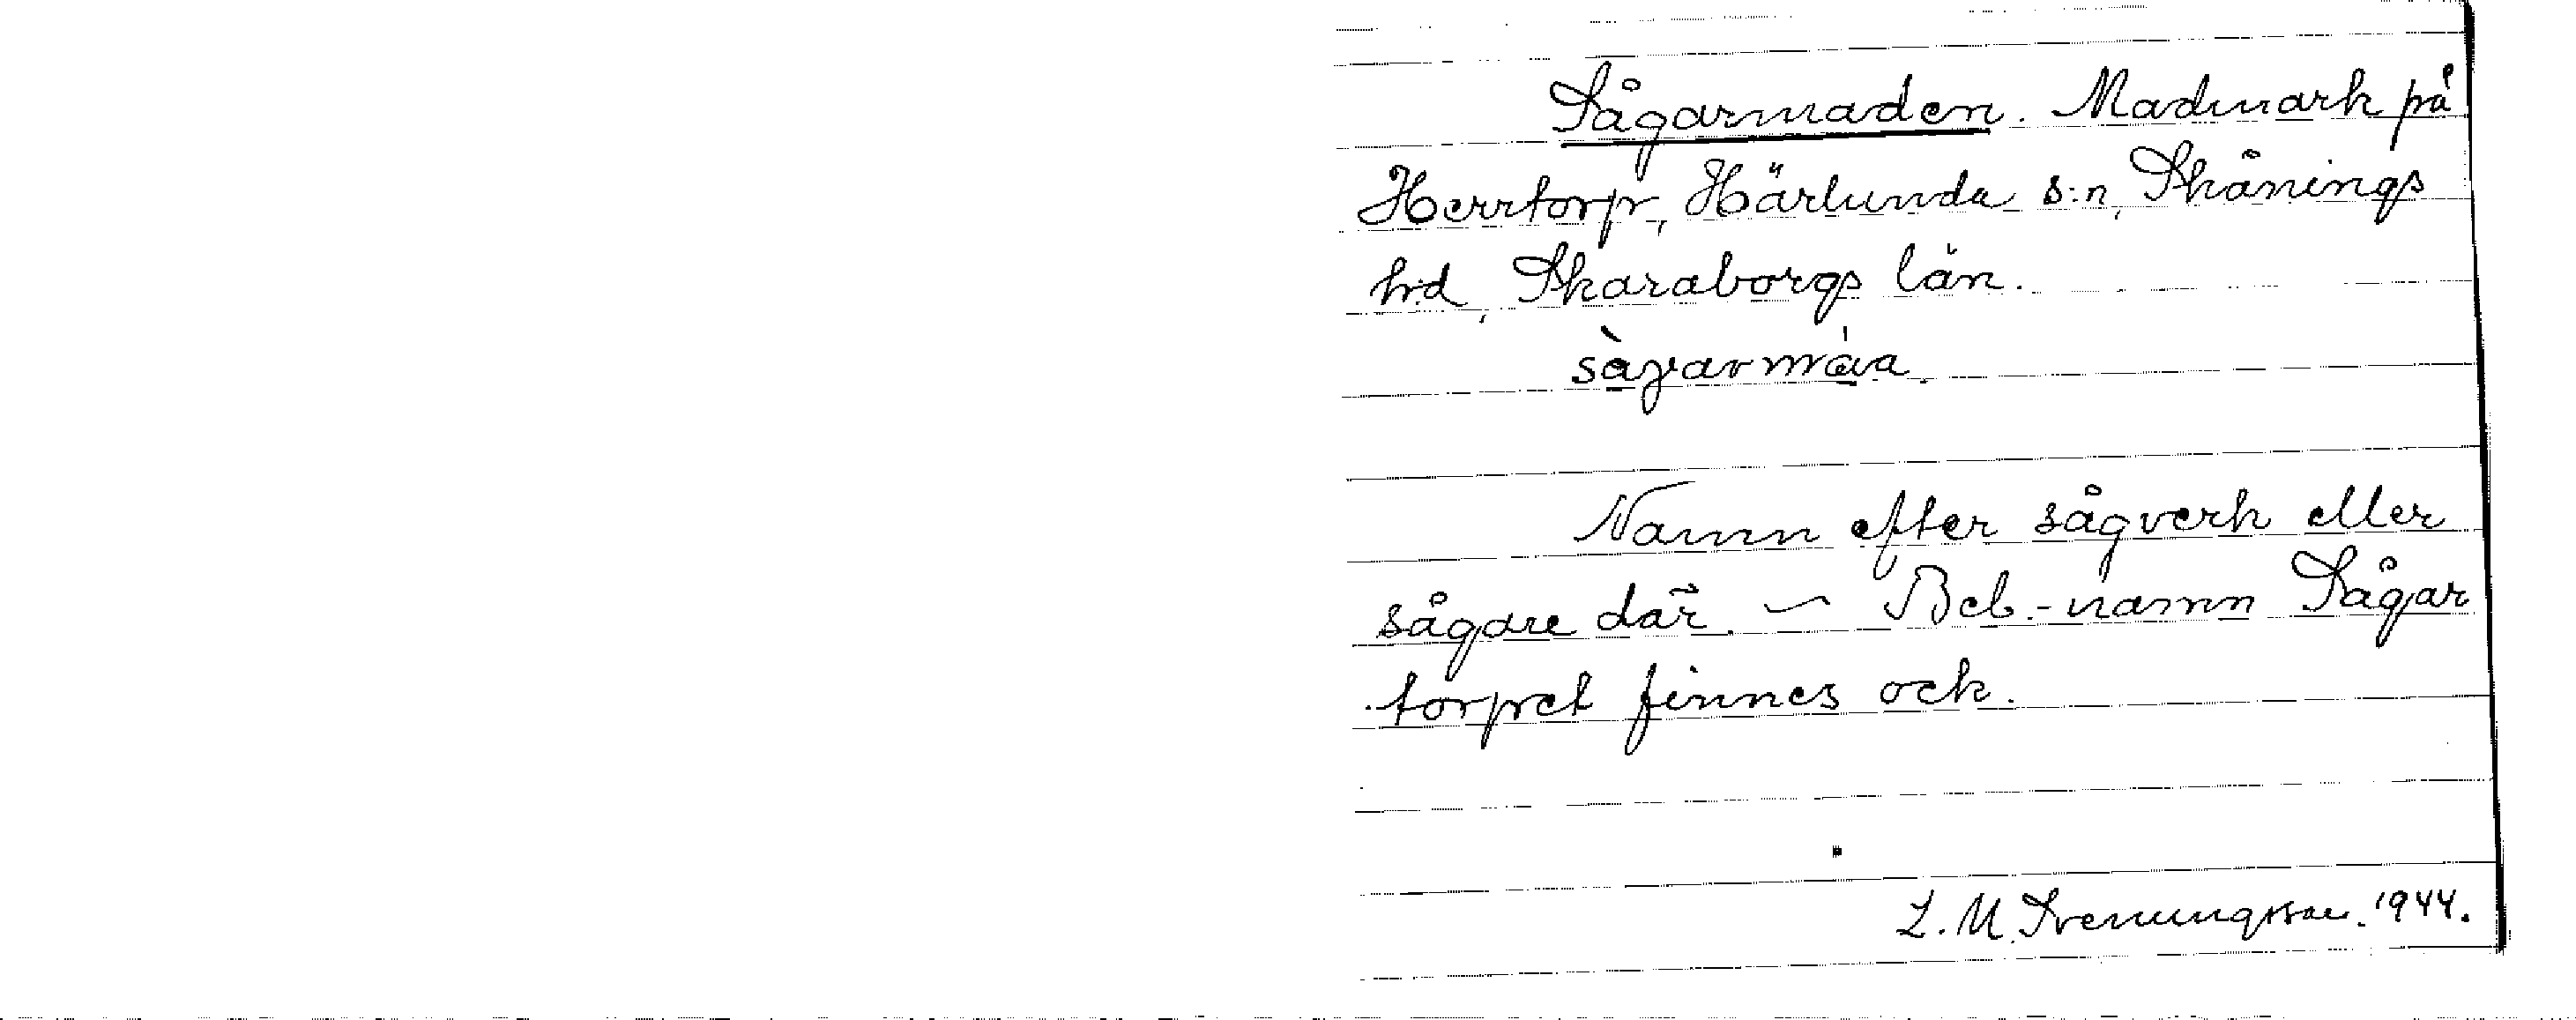 Sågarmaden. Madmark på
Herrtorp, Härlunda s:n, Skånings
hd, Skaraborgs län.
Namn efter sågverk eller
sågare där. – Beb.-namn Sågar
torpet finnes ock.
L. M. Svenungsson. 1944.